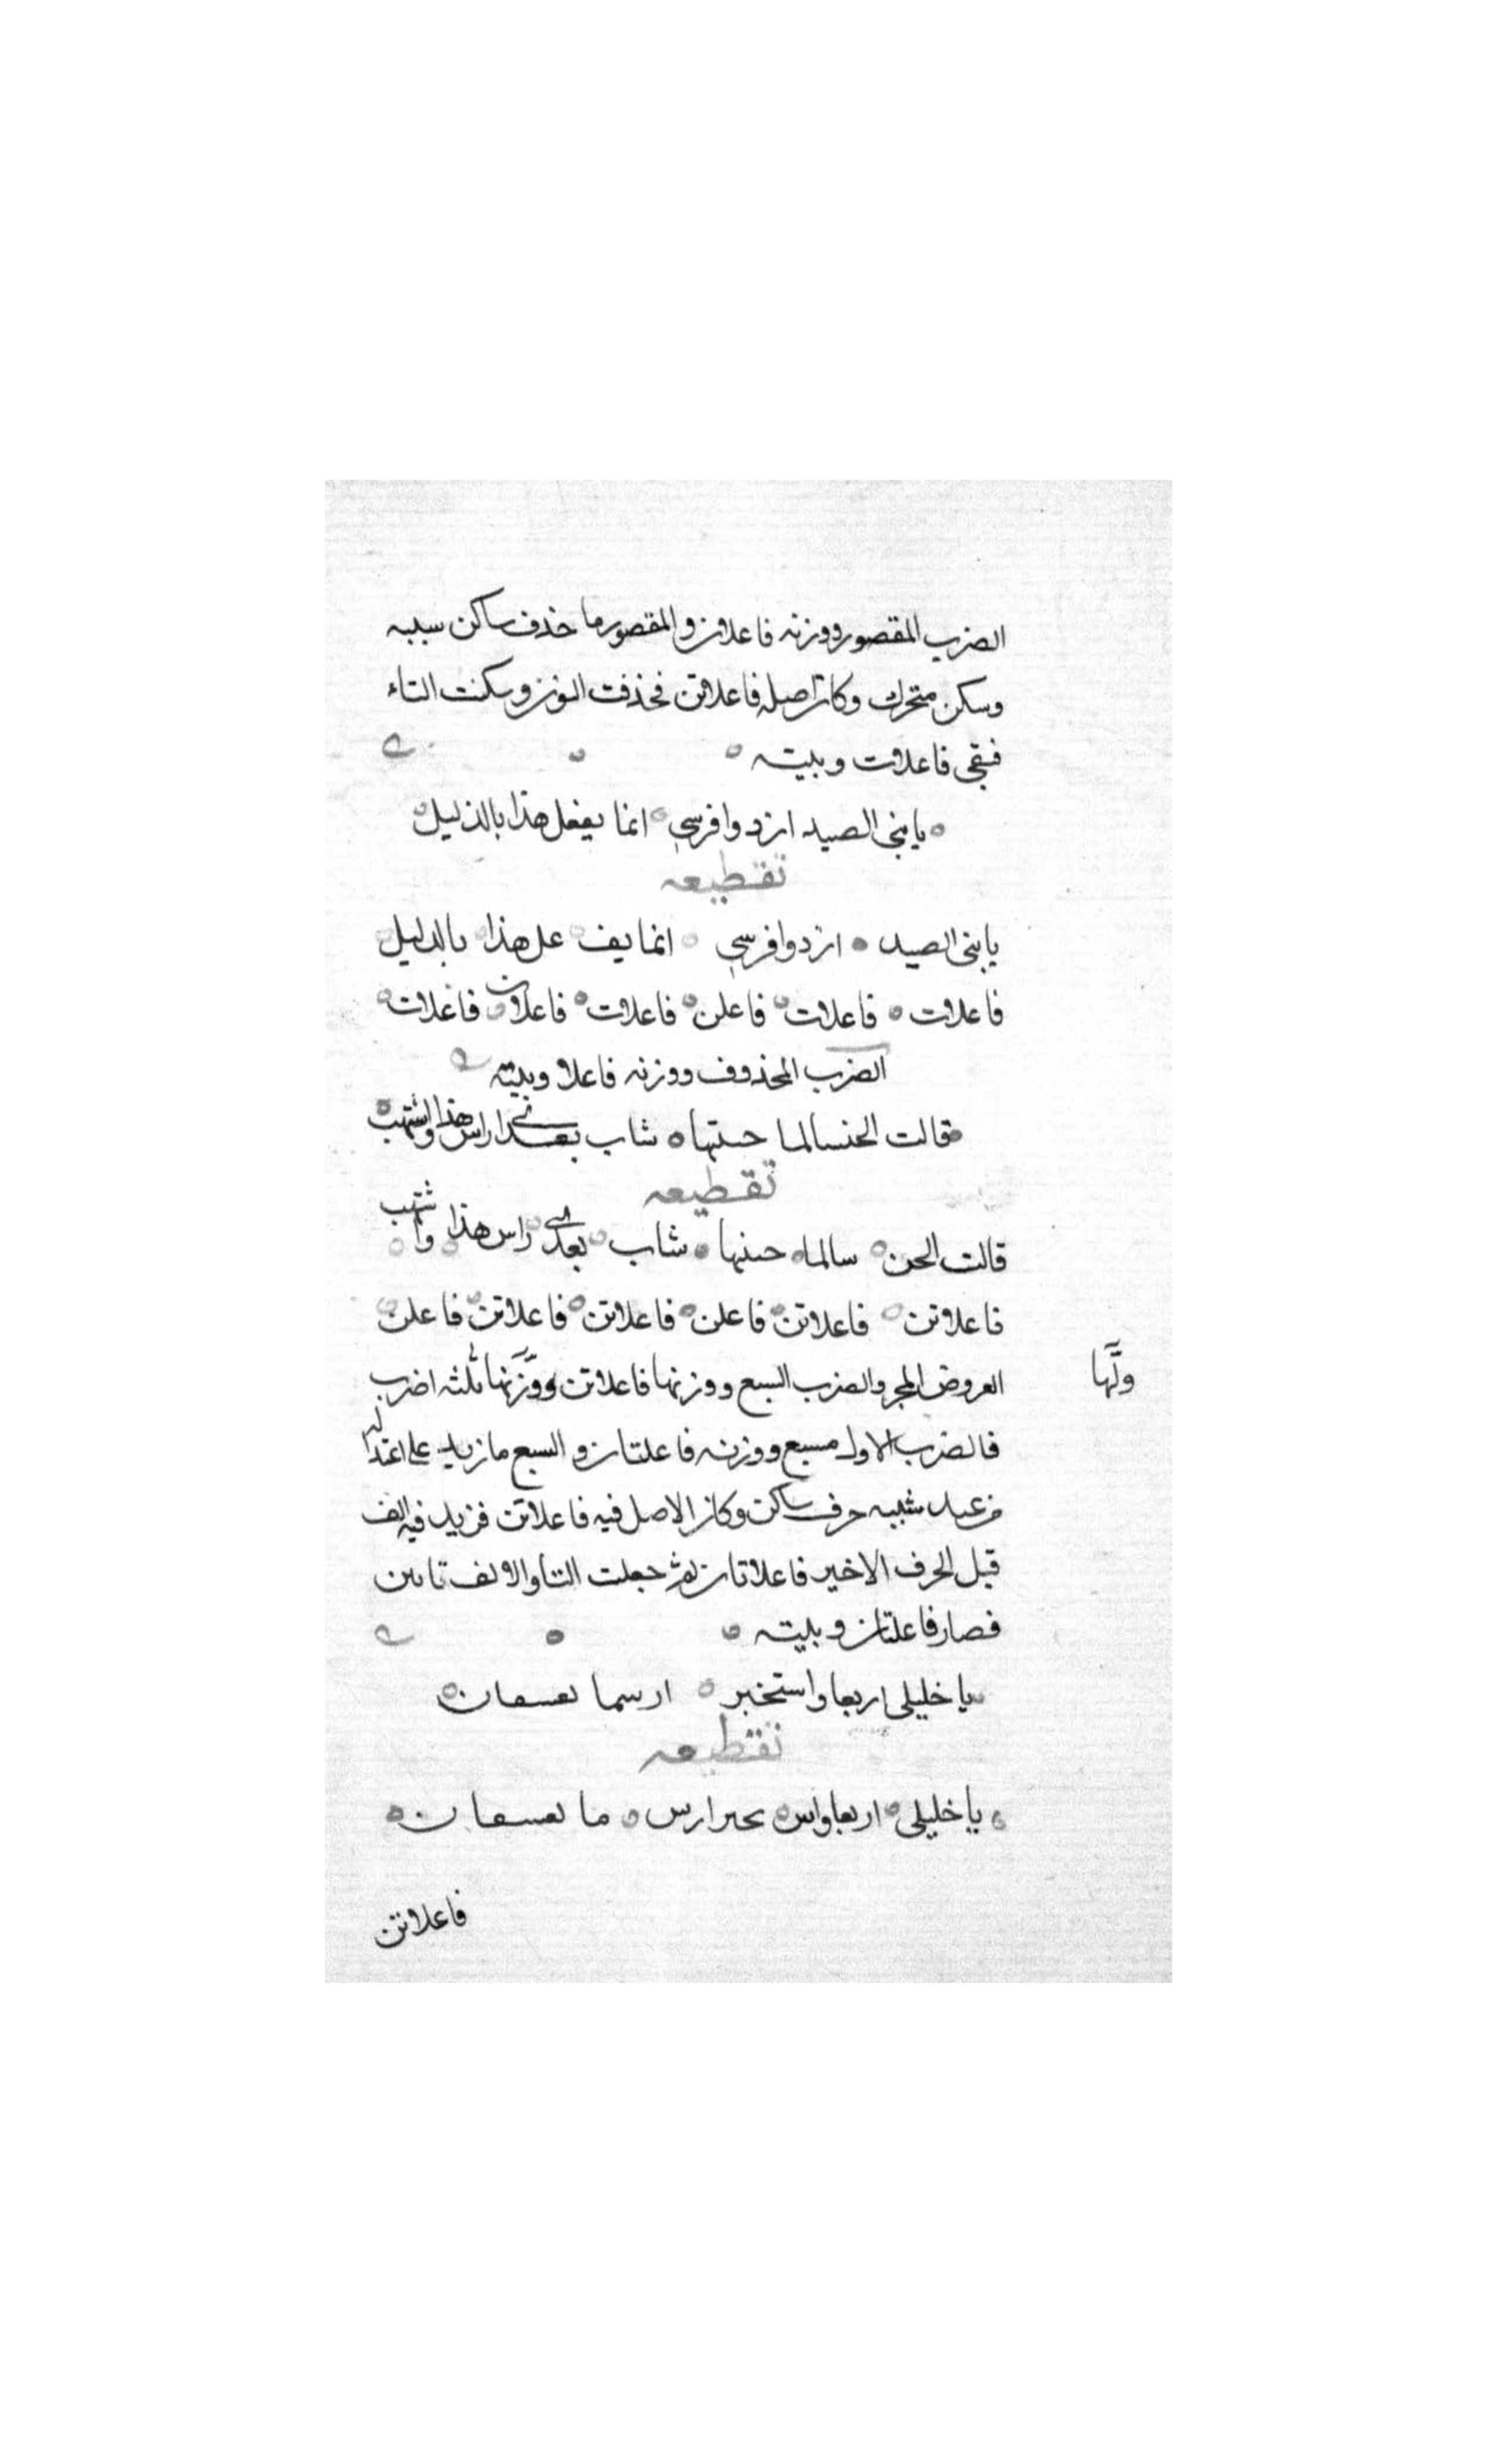 الضرب المقصور ووزنه فاعلان والمقصور ما حذف ساكن سببه
وسكن متحرك وكان اصله فاعلاتن فحذفت النون وسكنت التاء
فبقى فاعلات وبيته
يا بنى الصيد ازدوا فرسي انما يفعل هذا بالذليل
تقطيعه
يا بنى الصيد ازدوا فرسي انما يف عل هذا بالدليل
فاعلات فاعلات فاعلن فاعلات فاعلاتن فاعلات
الضرب المحذوف ووزنه فاعلا وبيته
قالت الخنسا لما جئتها شاب بعدى راس هذا واشتهب
تقطيعه
قالت الخن سا لما جئتها شاب بعدى راس هذا واشتهب
فاعلاتن فاعلاتن فاعلن فاعلاتن فاعلاتن فاعلن
العروض المجز والضرب السبع ووزنها فاعلاتن ووزنها ثلثه اضرب
ولها
فالضرب الاول مسبع ووزنه فاعلتان والسبع ما زيد على اعتداله
من عند سببه حرف ساكن وكان الاصل فيه فاعلاتن فزيد فيه الف
قبل الحرف الاخير فاعلاتان ثم جعلت التا والالف تا ين
فصار فاعلتان وبيته
يا خليلى اربعا واستخبر ارسما بعسفان
تقطيعه
يا خليلى اربعا واس تخبر ارس ما بعسفان
فاعلاتن